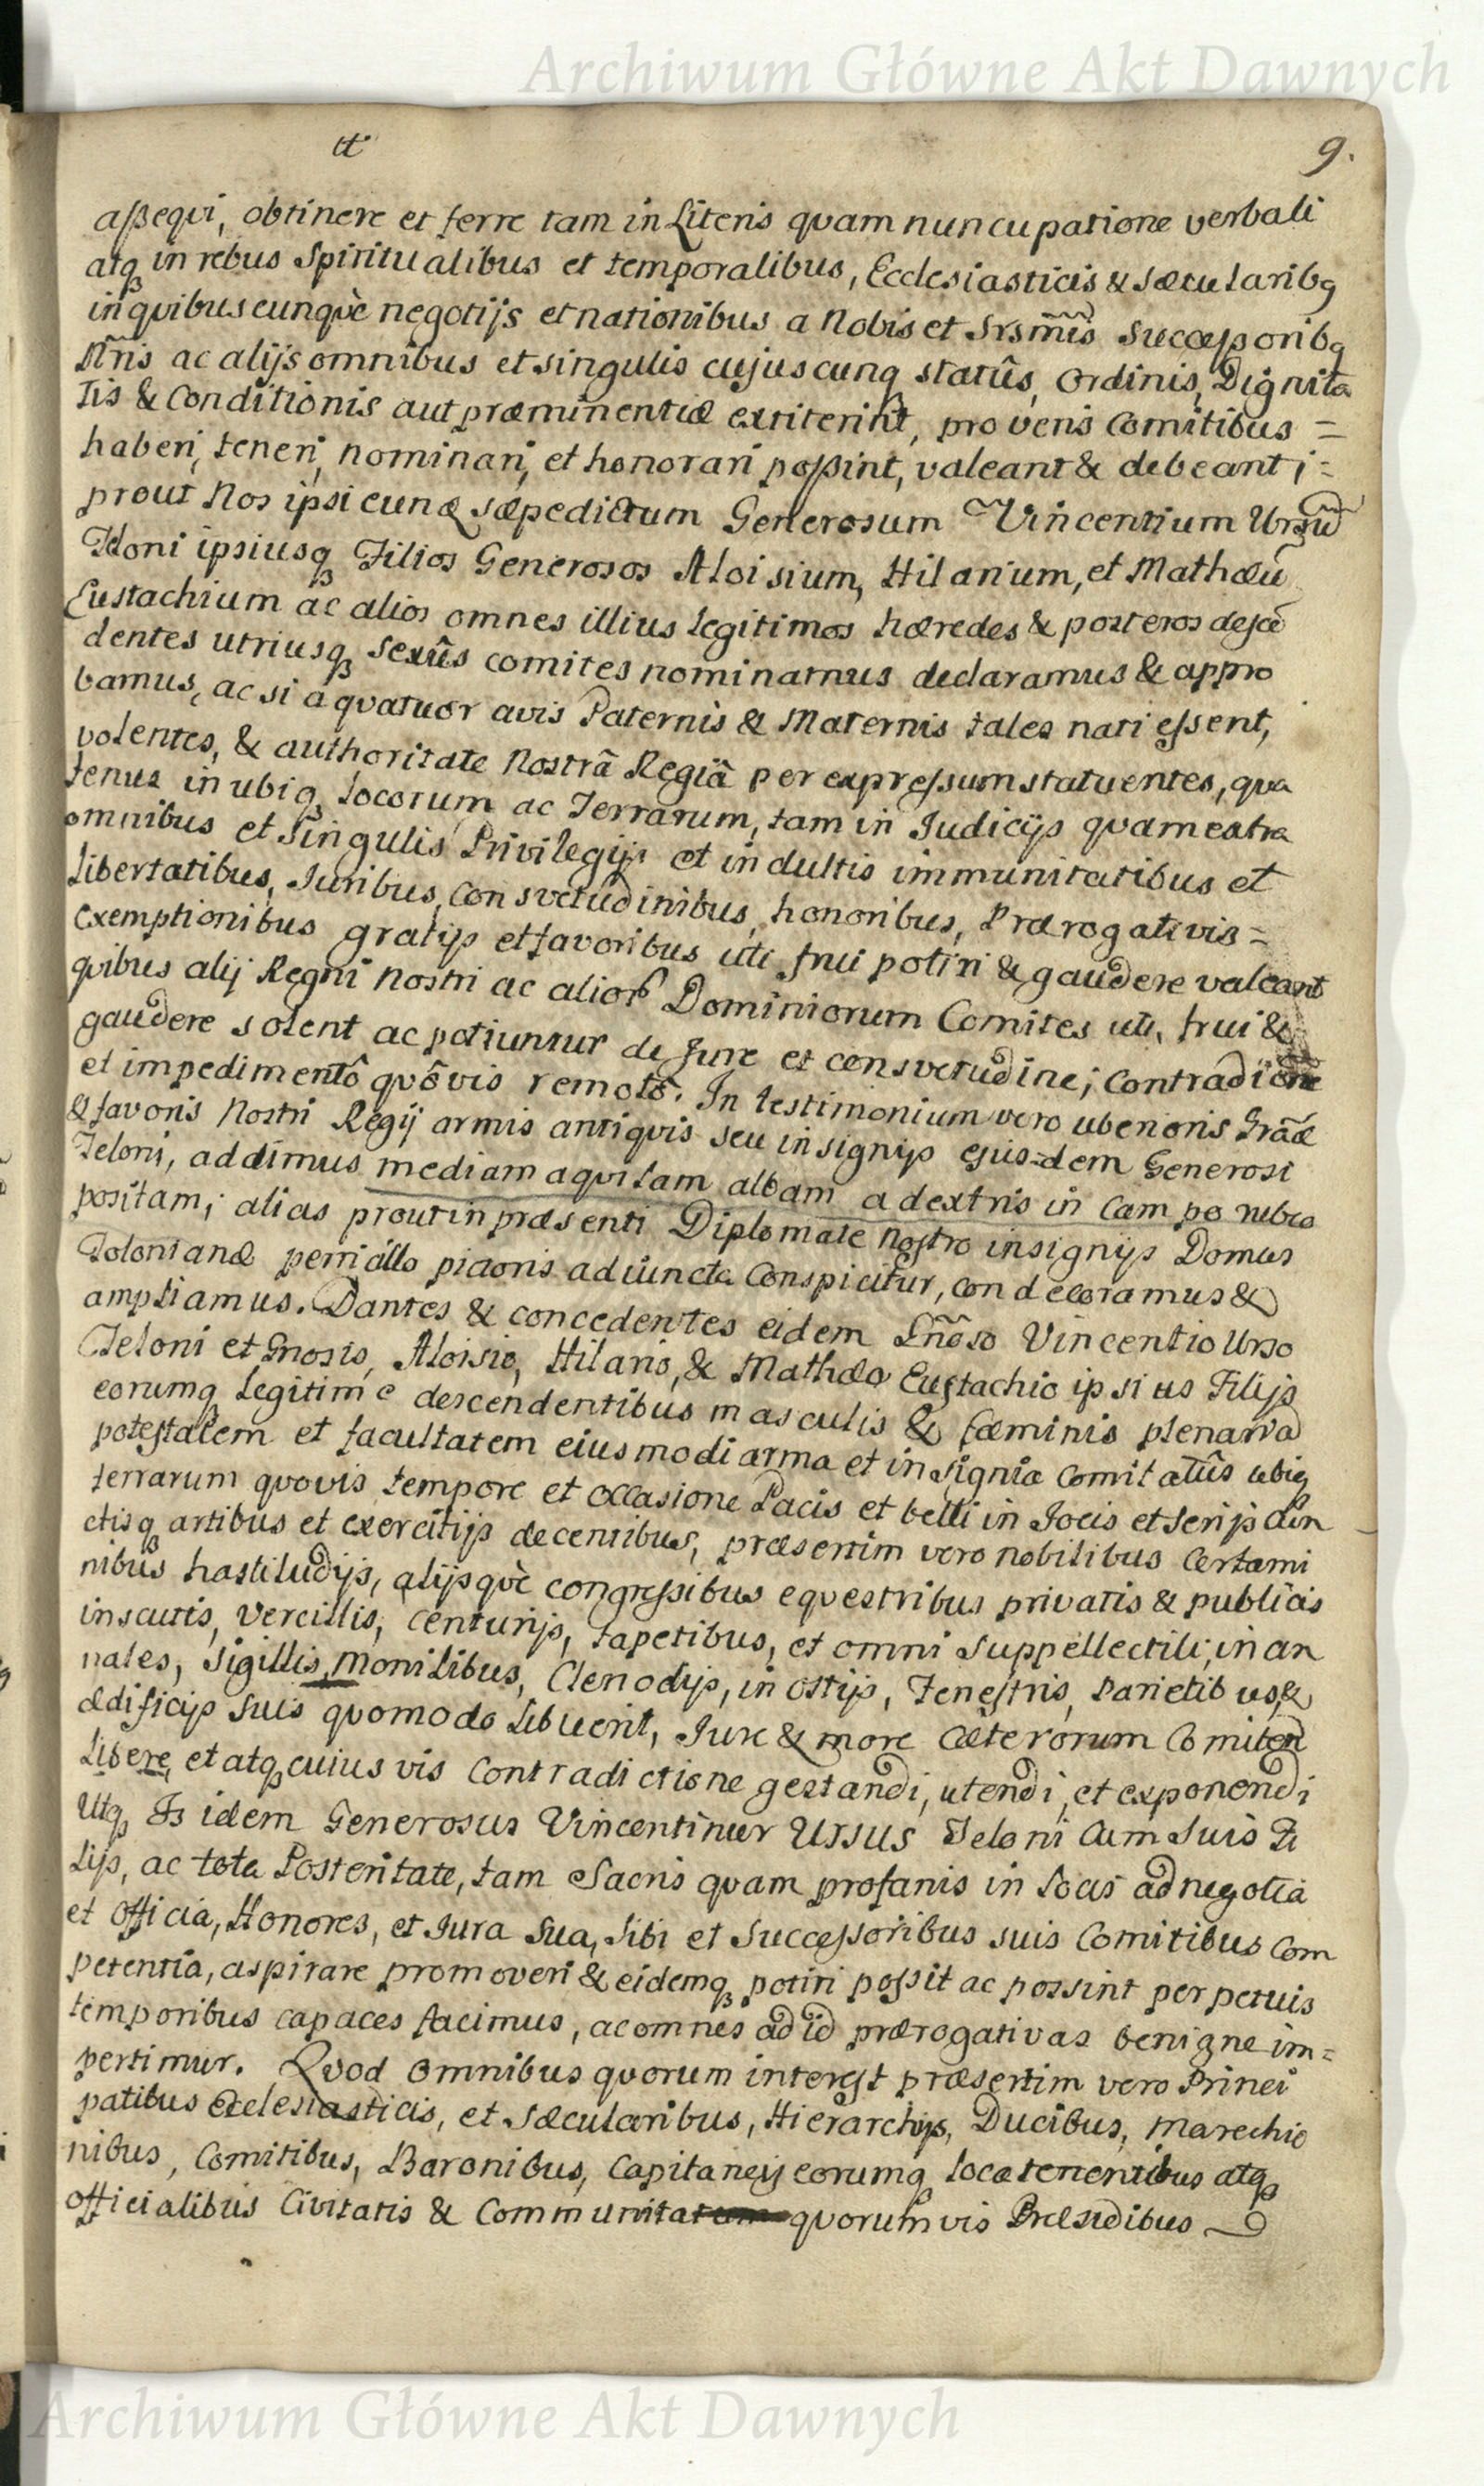 Archiwum Główne Akt Dawnych
tt
9.
aßequi, obtinere et ferre tam in Literis quam nuncupatione verbali
atq in rebus Spiritualibus et temporalibus, Ecclesiasticis & sæcularibq
in quibuscunquè negotijs et nationibus a Nobis et Srsm̃is Succeßoribq
Nr̃is ac alijs omnibus et singulis cujuscunq statûs, Ordinis, Dignita
tis & Conditionis aut præminentiæ extiterint, pro veris Comitibus =
haberi, teneri, nominari, et honorari poßint, valeant & debeant; =
prout Nos ipsi eunq sæpedictum Generosum Vincentium Ursũ
Teloni ipsiusq Filios Generosos Aloisium, Hilarium, et Mathæũ
Eustachium ac alios omnes illius Legitimos hæredes & posteros descẽ
dentes utriusq sexûs comites nominamus declaramus & appro
bamus, ac si a quatuor avis Paternis & Maternis tales nati eßent,
volentes, & authoritate Nostrâ Regiâ per expreßum statuentes, qua
tenus in ubiq locorum ac Terrarum, tam in Iudicijs quam extra
omnibus et singulis Privilegijs et indultis immunitatibus et
Libertatibus, Iuribus, consvetudinibus, honoribus, Prærogativis =
exemptionibus gratijs et favoribus uti frui potiri & gaudere valeant
quibus alij Regni Nostri ac alior Dominiorum Comites uti, frui &
gaudere solent ac potiuntur de Jure et consvetudine; Contradictione
et impedimentô quôvis remotô. In testimonium vero uberioris Grãæ
& favoris Nostri Regij armis antiquis seu insignijs ejus=dem Generosi
Teloni, addimus mediam aquilam albam a dextris in Campo rubro
positam; alias prout in præsenti Diplomate Nostro insignijs Domus
Tolonianæ penicillo pictoris adiuncta Conspicitur, condecoramus &
ampliamus. Dantes & concedentes eidem Gñoso Vincentio Urso
Teloni et Gnosis, Aloisio, Hilario, & Mathæo Eustachio ipsius Filijs
eorumq Legitime descendentibus masculis & fæminis plenariã
potestatem et facultatem eiusmodi arma et insignia Comitatûs ubiq
terrarum quovis tempore et occasione Pacis et belli in Iocis et serijs cũn
ctisq artibus et exercitijs decentibus, præsertim vero nobilibus Certami
nibus hastiludijs, alijsquè congreßibus equestribus privatis & publicis
in scutis, vercillis, centurijs, tapetibus, et omni suppellectili, in an
nales, sigillis, monilibus, Clenodijs, in ostijs, Fenestris, Parietibus, &
ædificijs suis quomodo Libuerit, Iure & more cæterorum Comitum
Libere, et atq cuius vis Contradictione gestandi, utendi, et exponendi
Utq Is idem Generosus Vincentinus Ursus Teloni cum suis Fi
lijs, ac tota Posteritate, tam Sacris quam profanis in Locis ad negotia
et officia, Honores, et Iura sua, sibi et Succeßoribus suis Comitibus Com
petentia, aspirare promoveri & eidemq potiri poßit ac possint perpetuis
temporibus capaces facimus, ac omnes ad id prærogativas benigne im=
pertimur. Quod omnibus quorum interest præsertim vero Princi
patibus Ecclesiasticis, et sæcularibus, Hierarchijs, Ducibus, Marechio
nibus, Comitibus, Baronibus, Capitaneis eorumq locatenentibus atq
officialibus Civitatis & Communitatum quorumvis Præsidibus
Archiwum Główne Akt Dawnych